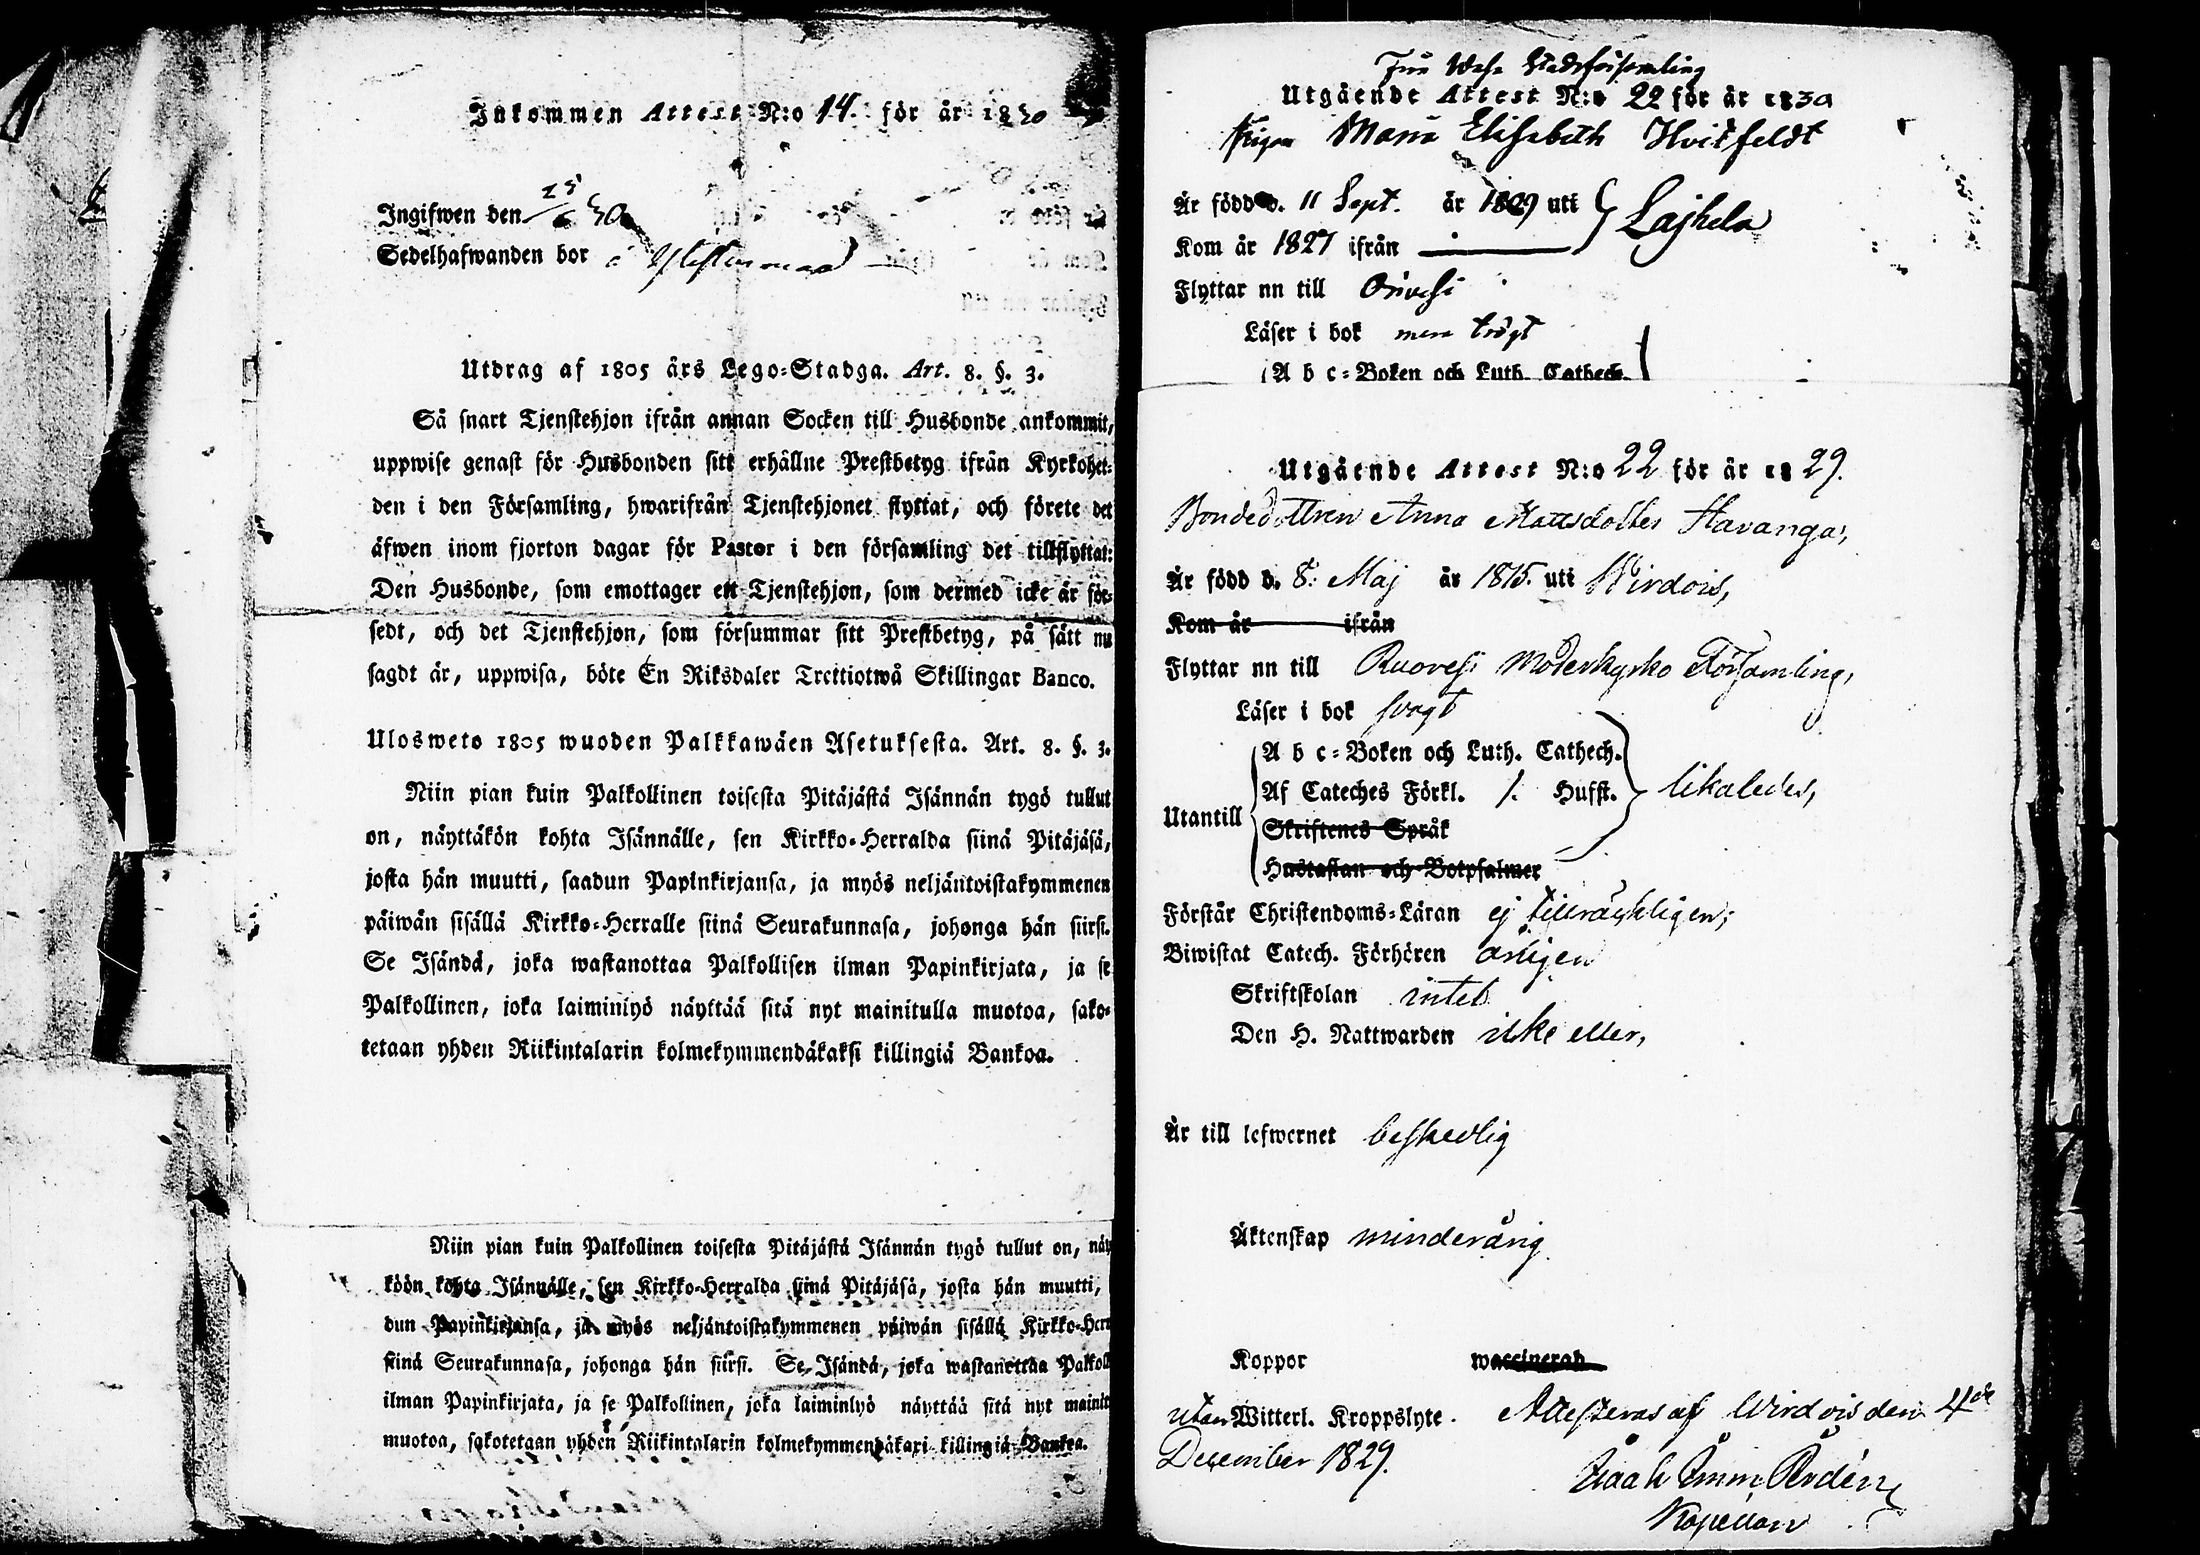 Inkommen Attest N:o 14. för år 1830
Ingifwen den 25/6 30
Sedelhafwanden bor i
Utdrag af 1805 års Lego=Stadga. Art. 8. §. 3.
Så snart Tjenstehjon ifrån annan Socken till Husbonde ankommit,
uppwise genast för Husbonden sitt erhållne Prestbetyg ifrån Kyrkoher=
den i den Församling, hwarifrån Tjenstehjonet flyttat, och förete det
äfwen inom fjorton dagar för Pastor i den församling det tillflyttat:
Den Husbonde, som emottager ett Tjenstehjon, som dermed icke är för=
sedt, och det Tjenstehjon, som försummar sitt Prestbetyg, på sätt nu
sagdt är, uppwisa, böte En Riksdaler Trettiotwå Skillingar Banco.
Ulosweto 1805 wuoden Palkkawäen Asetuksesta. Art. 8. §. 3.
Niin pian kuin Palkollinen toisesta Pitäjästä Isännän tygö tullut
on, näyttäkön kohta Isännälle, sen Kirkko=Herralda siinä Pitäjäsä,
josta hän muutti, saadun Papinkirjansa, ja myös neljäntoistakymmenen
päiwän sisällä Kirkko=Herralle siinä Seurakunnasa, johonga hän siirsi.
Se Isändä, joka wastanottaa Palkollisen ilman Papinkirjata, ja se
Palkollinen, joka laiminlyö näyttää sitä nyt mainitulla muotoa, sako=
tetaan yhden Riikintalarin kolmekymmendäkaksi killingiä Bankoa.
Niin pian kuin Palkollinen toisesta Pitäjästä Isännän tygö tullut on, näy
köön kohta Isännälle, sen Kirkko=Herralda siinä Pitäjäsä, josta hän muutti,
dun Papinkirjansa, ja myös neljäntoistakymmenen päiwän sisällä Kirkko=Herr
siinä Seurakunnasa, johonga hän siirsi. Se Isändä, joka wastanottaa Palkoll
ilman Papinkirjata, ja se Palkollinen, joka laiminlyö näyttää sitä nyt mainit
muotoa, sakotetaan yhden Riikintalarin kolmekymmendäkaxi killingiä Bankoa.
från Wasa Stadsförsamling
Utgående Attest N:o 22 för år 1830
Pigan Maria Elisabeth Hvitfeldt
Är född d. 11 Sept. år 1809 uti } Lajhela
Kom år 1827 ifrån
Flyttar nu till Orivesi
Läser i bok men trögt
A b c=Boken och Luth. Cathech.
Utgående Attest N:o 22 för år 1829.
Bondedottren Anna Mattsdotter Havanga,
Är född d. 8. Maj år 1815. uti Wirdois,
Kom år ifrån
Flyttar nu till Ruovesi Moderkyrko Församling,
Läser i bok svagt
A b c=Boken och Luth. Cathech.
Af Cateches Förkl. /. Hufst. likaledes,
Utantill
Skriftenes Språk
Hustaflan och Botpsalmer
Förstår Christendoms=Läran ej tillräckligen;
Biwistat Catech. Förhören ärligen
Skriftskolan intet
Den H. Nattwarden icke eller,
Är till lefwernet beskedlig
Äktenskap minderårig
Koppor waccinerad
utan Witterl. Kroppslyte. Attesteras af Wirdois den 4de
December 1829.
Isaak Imm. Rodén
Kapellan